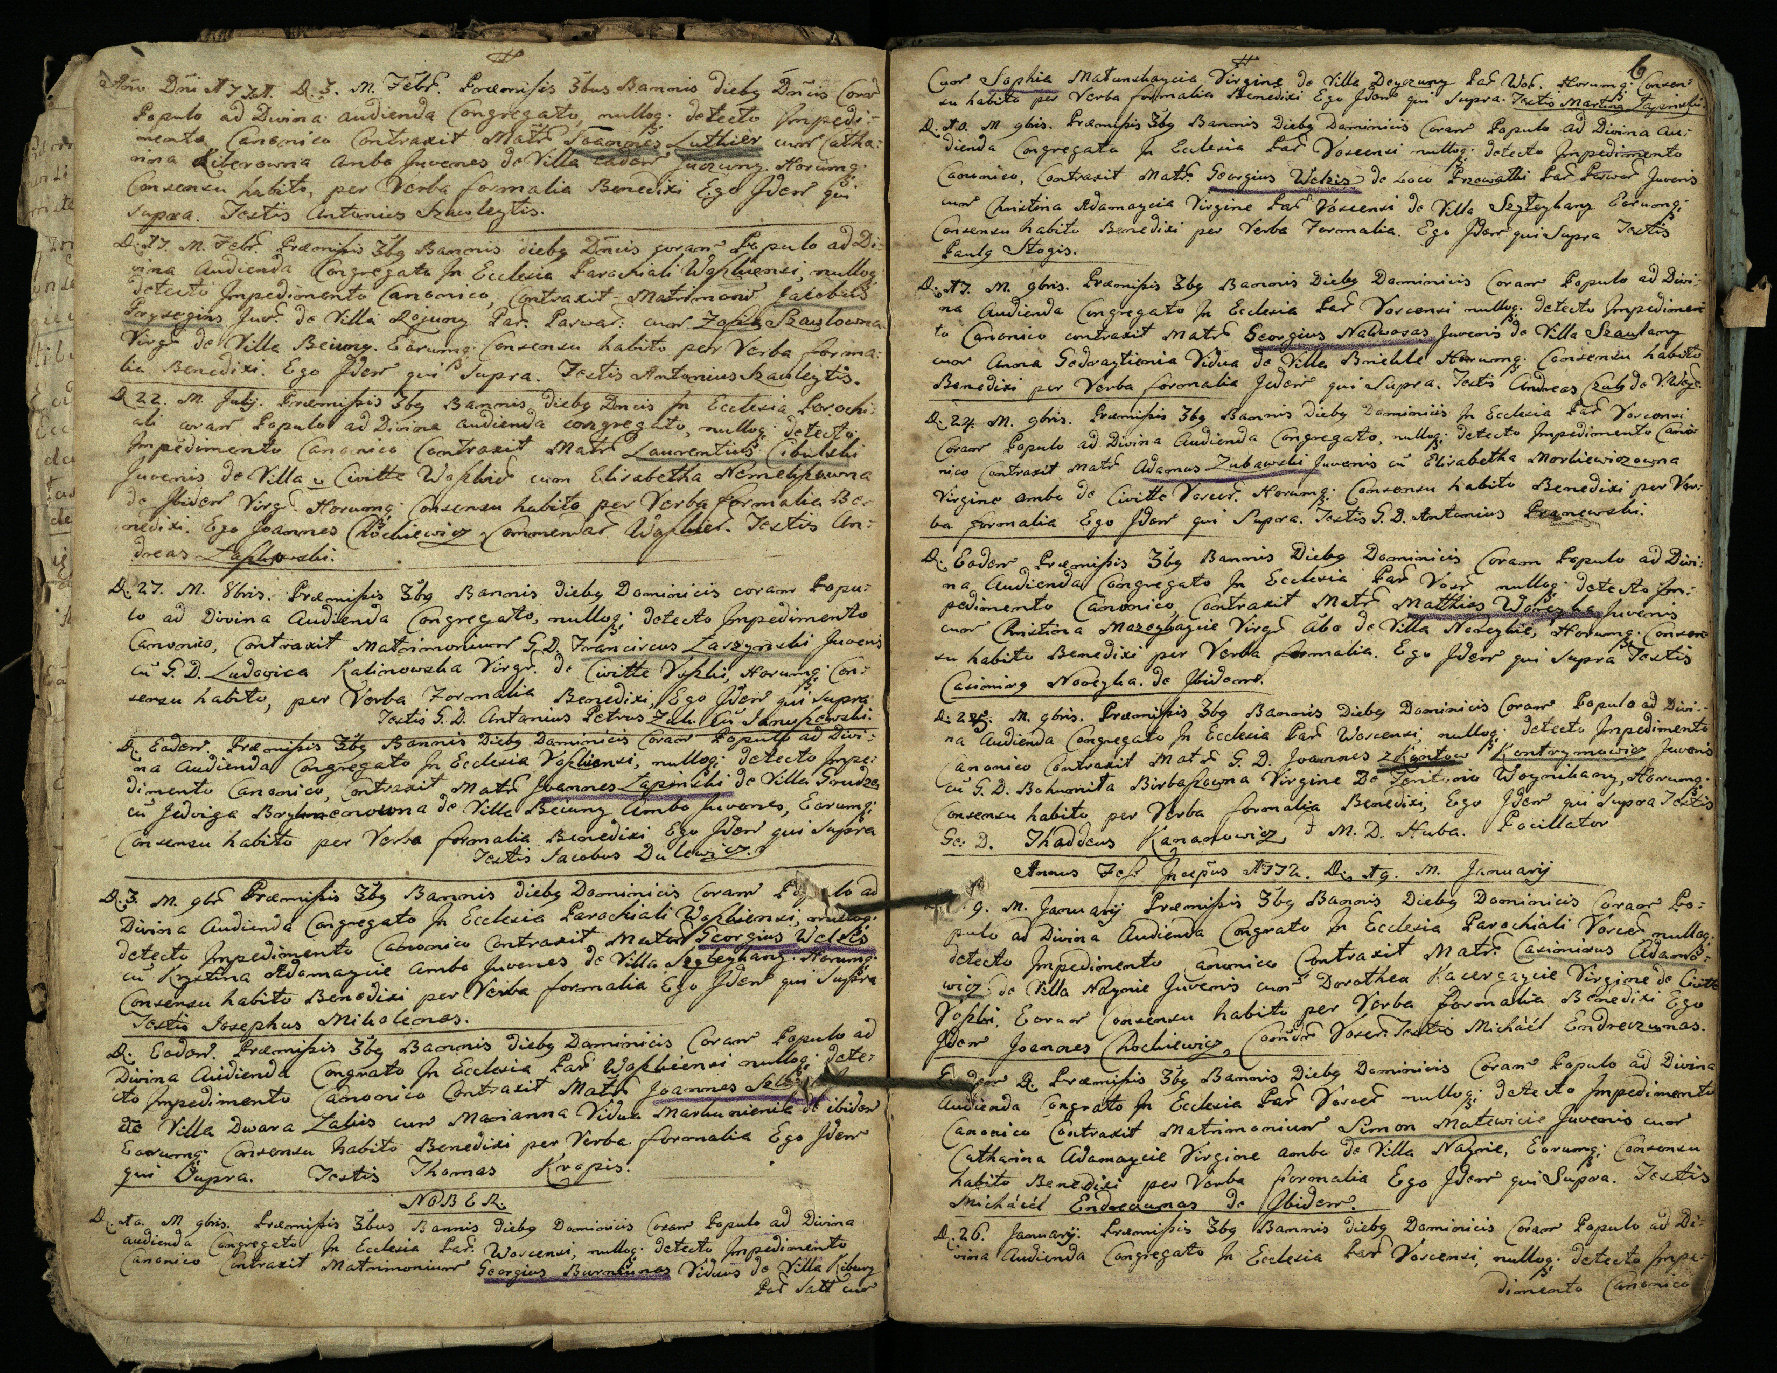 Año Dñi 1771. D. 3. M. Febr. Præmissis 3bus Bannis dieby Dñcis Coram
Populo ad Divina audienda Congregato, nulloq; detecto Impedi-
mento Canonico Contraxit Matr Joannes Luthier cum Catha-
rina Literowna Ambo Juvenes de Villa eadem Juszuny. Horumq;
Consensu habito, per Verba formalia Benedixi Ego Idem qui
supra. Testis Antonius Szauleytis.
D. 17. M. Febr. Præmissis 3bq Bannis dieby Dñcis coram Populo ad Di-
vina Audienda Congregato In Ecclesia Parochiali Wophiensi, nulloq
detecto Impedimento Canonico, Contraxit Matrimon Jacobus
Juv. de Villa Par. cum Zofia Szaulowna
Virg de Villa Beiuny. Earumq; Consensu habito per Verba forma-
lia Benedixi. Ego Idem qui Supra. Testis Antonius Szauleytis.
D. 22. M. July. Præmissis 3bq Bannis dieby Dñcis In Ecclesia Parochi-
ali coram Populo ad Divina audienda congregato, nulloq; detecto
Impedimento Canonico Contraxit Matr Laurentius Cibulski
Juvenis de Villa Civitte cum Elisabetha
de Ibidem Virg. Horumq; Consensu habito per Verba formalia Be-
nedixi. Ego Joannes Chockiewicz Commendar Testis An-
dreas
D. 27. M. 8bris. Præmissis 3bq Bannis Dieby Dominicis coram Popu-
lo ad Divina Audienda Congregato, nulloq; detecto Impedimento
Canonico, Contraxit Matrimonium G. D. Franciscus Laszynski Juvenis
cũ G. D. Ludovica Kalinowska Virge. de Civitte Vophi, Horumq; Con-
sensu habito, per Verba Formalia Benedixi, Ego Idem qui supra
Testis G. D. Antonius Petrus
D. Eadem. Præmissis 3bq Bannis Dieby Dominicis Coram Populo ad Divi-
na Audienda Congregato In Ecclesia Vophiensi, nulloq; detecto Impe-
dimento Canonico, Contraxit Matr Joannes Lapinski de Villa Grudze
cũ Jedviga de Villa Beiuny Ambo Juvenes, Earumq;
Consensu habito per Verba formalia Benedixi Ego Idem qui Supra
Testis Jacobus Dulewicz.
D. 3. M. 9br Præmissis 3bq Bannis dieby Dominicis Coram Populo ad
Divina Audienda Congregato In Ecclesia Parochiali Wophiensi, nulloq;
detecto Impedimento Canonico Contraxit Matrm Georgius Welxis
cũ Krystina Adamaycie Ambo Juvenes de Villa Szyleykany. Horumq;
Consensu habito Benedixi per Verba formalia Ego Idem qui Supra
Testis Josephus Mikolenas.
D. Eadem. Præmissis 3bq Bannis dieby Dominicis Coram Populo ad
Divina Audienda Congñato In Ecclesia Par Wophiensi nulloq; dete-
cto Impedimento Canonico Contraxit Matr Joannes
de Villa Dwara Zabis cum Marianna Vidua de ibidem
Earumq; Consensu habito Benedixi per Verba formalia Ego Idem
qui Supra. Testis Thomas Kropis.
NOBER
D. 10. M 9bris. Præmissis 3bus Bannis dieby Dominicis Coram Populo ad Divina
audienda Congregato In Ecclesia Par. Woscensi, nulloq; detecto Impedimento
Canonico Contraxit Matrimonium Georgius Viduus de Villa Kibury
Par Satt cum
6
Cum Sophia Virgine de Villa Par Wob. Horumq; Consen-
su habito per Verba formalia Benedixi Ego Idem qui Supra. Testis Martinus
D. 10. M 9bris. Præmissis 3bq Bannis Dieby Dominicis Coram Populo ad Divina Au-
dienda Congregato In Ecclesia Par Voscensi nulloq; detecto Impedimento
Canonico, Contraxit Matr. Georgius Welxis de Loco Par Juvenis
cum Christina Adamaycia Virgine Par Voscensi de Villa Szyleykany Earumq;
Consensu habito Benedixi per Verba Formalia Ego Idem qui Supra Testis
Paulq Stogis.
D. 17. M. 9bris. Præmissis 3bq Bannis Dieby Dominicis Coram Populo ad Divi-
na Audienda Congregato In Ecclesia Par Voscensi nulloq; detecto Impedimen-
to Canonico contraxit Matr Georgius Juvenis de Villa Szaukany
cum Anna Vidua de Villa Horumq; Consensu habito
Benedixi per Verba formalia Idem qui Supra. Testis Andreas
D. 24. M. 9bris. Præmissis 3bq Bannis Dieby Dominicis In Ecclesia Par Voscensi
Coram Populo ad Divina Audienda Congregato, nulloq; detecto Impedimento Cano-
nico Contraxit Matr Adamus Zubawski Juvenis cũ Elisabetha Morkiewiczowna
Virgine ambo de Civitte Horumq; Consensu habito Benedixi per Ver-
ba formalia Ego Idem qui Supra. Testis G. D. Antonius
D. Eadem Præmissis 3bq Bannis Dieby Dominicis Coram Populo ad Divi-
na Audienda Congregato In Ecclesia Par Vosc nulloq; detecto Im-
pedimento Canonico, Contraxit Matr Matthias Juvenis
cum Christina Virg de Villa Horumq; Consen-
su habito Benedixi per Verba formalia. Ego Idem qui Supra Testis
Casimirq de Ibidem.
D. M. 9bris. Præmissis 3bq Bannis Dieby Dominicis Coram Populo ad Divi-
na Audienda Congregato In Ecclesia Par Woscensi, nulloq; detecto Impedimento
Canonico Contraxit Matr G. D. Joannes z Kontow Kontrymowicz Juvenis
cũ G. D. Virgine De Horumq;
Consensu habito per Verba formalia Benedixi, Ego Idem qui Supra Testis
G. D. Thaddeus Kananowicz M. D. Huba. Pocillator
Annus Incepus 1772. D. 19. M. Januarij
9. M. Januarij Præmissis 3bq Bannis Dieby Dominicis Coram Po-
pulo ad Divina Audienda Congrato In Ecclesia Parochiali nulloq;
detecto Impedimento anonico Contraxit Matr. Casimirus Adamo-
wicz de Villa Naynie Juvenis cum Dorothea Kacergaycie Virgine de Civitte
Vophi, Earum Consensu habito per Verba formalia Benedixi Ego
Idem Joannes Chockiewicz, Testis Michäel Endreczunas.
Eadem D. Præmissis 3bq Bannis Dieby Dominicis Coram Populo ad Divina
Audienda Congrato In Ecclesia Par nulloq; detecto Impedimento
Canonico Contraxit Matrimonium Simon Matewicie Juvenis cum
Catharina Adamaycie Virgine ambo de Villa Naynie, Earumq; Consensu
habito Benedixi per Verba formalia Ego Idem qui Supra. Testis
Michäel Endreczunas de Ibidem.
D. 26. Januarij. Præmissis 3bq Bannis Dieby Dominicis Coram Populo ad Di-
vina Audienda Congregato In Ecclesia Par Voscensi, nulloq; detecto Impe-
dimento Canonico